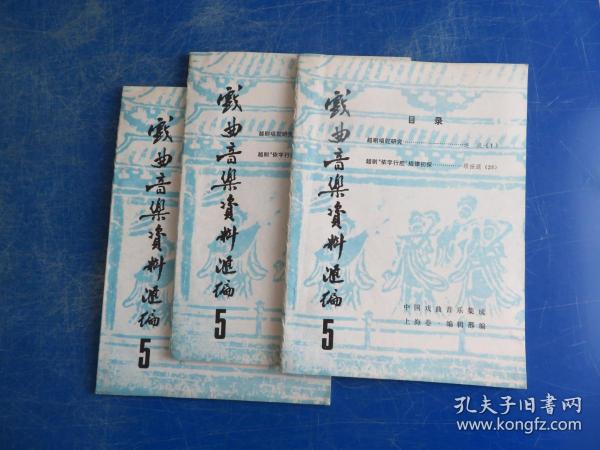 戲曲音樂資料滙编
5
戲曲音樂資料滙编
越剧唱腔研究
越剧"依字行腔
5
戲曲音樂資料滙编
5
目录
越剧唱腔研究…………………(1)
越剧"依字行腔"规律初探…………(28)
中国戏曲音乐集成
上海卷·编辑部编
孔夫子旧书网
www.kongfz.com